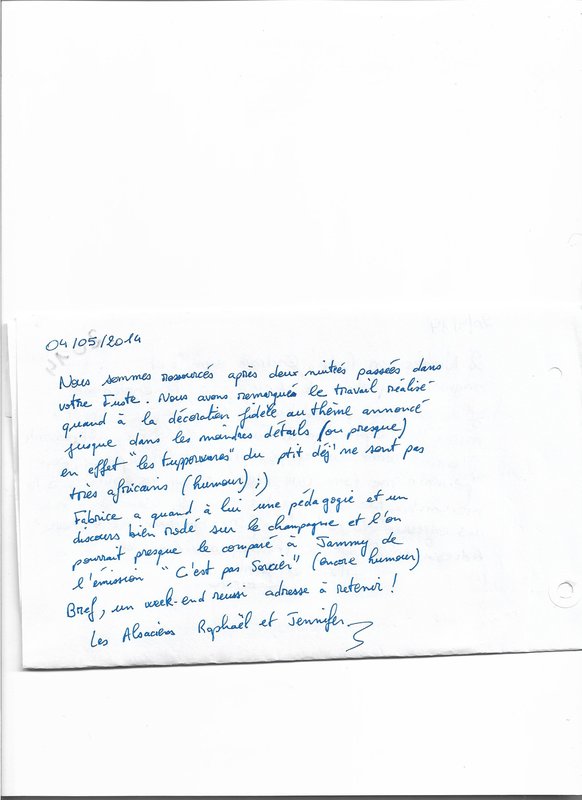 04/05/2014
Nous sommes ressourcés après deux nuitées passées dans
votre Fuste. Nous avons remarqués le travail réalisé
quand à la décoration fidèle au thème annoncé
jusque dans les moindres détails (ou presque)
en effet "les tupperwares" du ptit déj' ne sont pas
très africains (humour) ;)
Fabrice a quand à lui une pédagogie et un
discours bien rodé sur le champagne et l'on
pourrait presque le comparé à Jammy de
l'émission "C'est pas Sorcier" (encore humour)
Bref, un week-end réussi adresse à retenir !
Les Alsaciens Raphaël et Jennifer